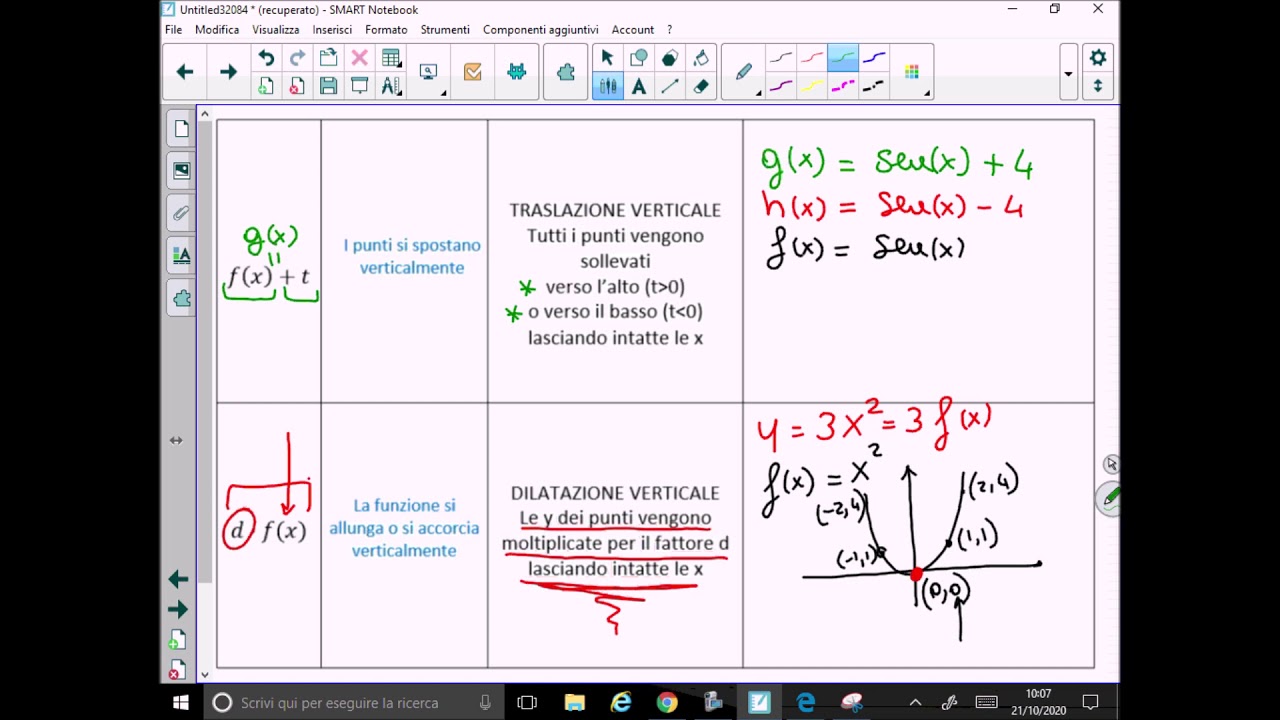 Untitled32084 * (recuperato) - SMART Notebook
File Modifica Visualizza Inserisci Formato Strumenti Componenti aggiuntivi Account ?
g(x)
=
f(x) + t
I punti si spostano
verticalmente
TRASLAZIONE VERTICALE
Tutti i punti vengono
sollevati
* verso l'alto (t>0)
* o verso il basso (t<0)
lasciando intatte le x
g(x) = sen(x) + 4
h(x) = sen(x) - 4
f(x) = sen(x)
d f(x)
La funzione si
allunga o si accorcia
verticalmente
DILATAZIONE VERTICALE
Le y dei punti vengono
moltiplicate per il fattore d
lasciando intatte le x
y = 3x² = 3 f(x)
f(x) = x²
(-2,4)
(2,4)
(-1,1)
(1,1)
(0,0)
Scrivi qui per eseguire la ricerca
10:07
21/10/2020